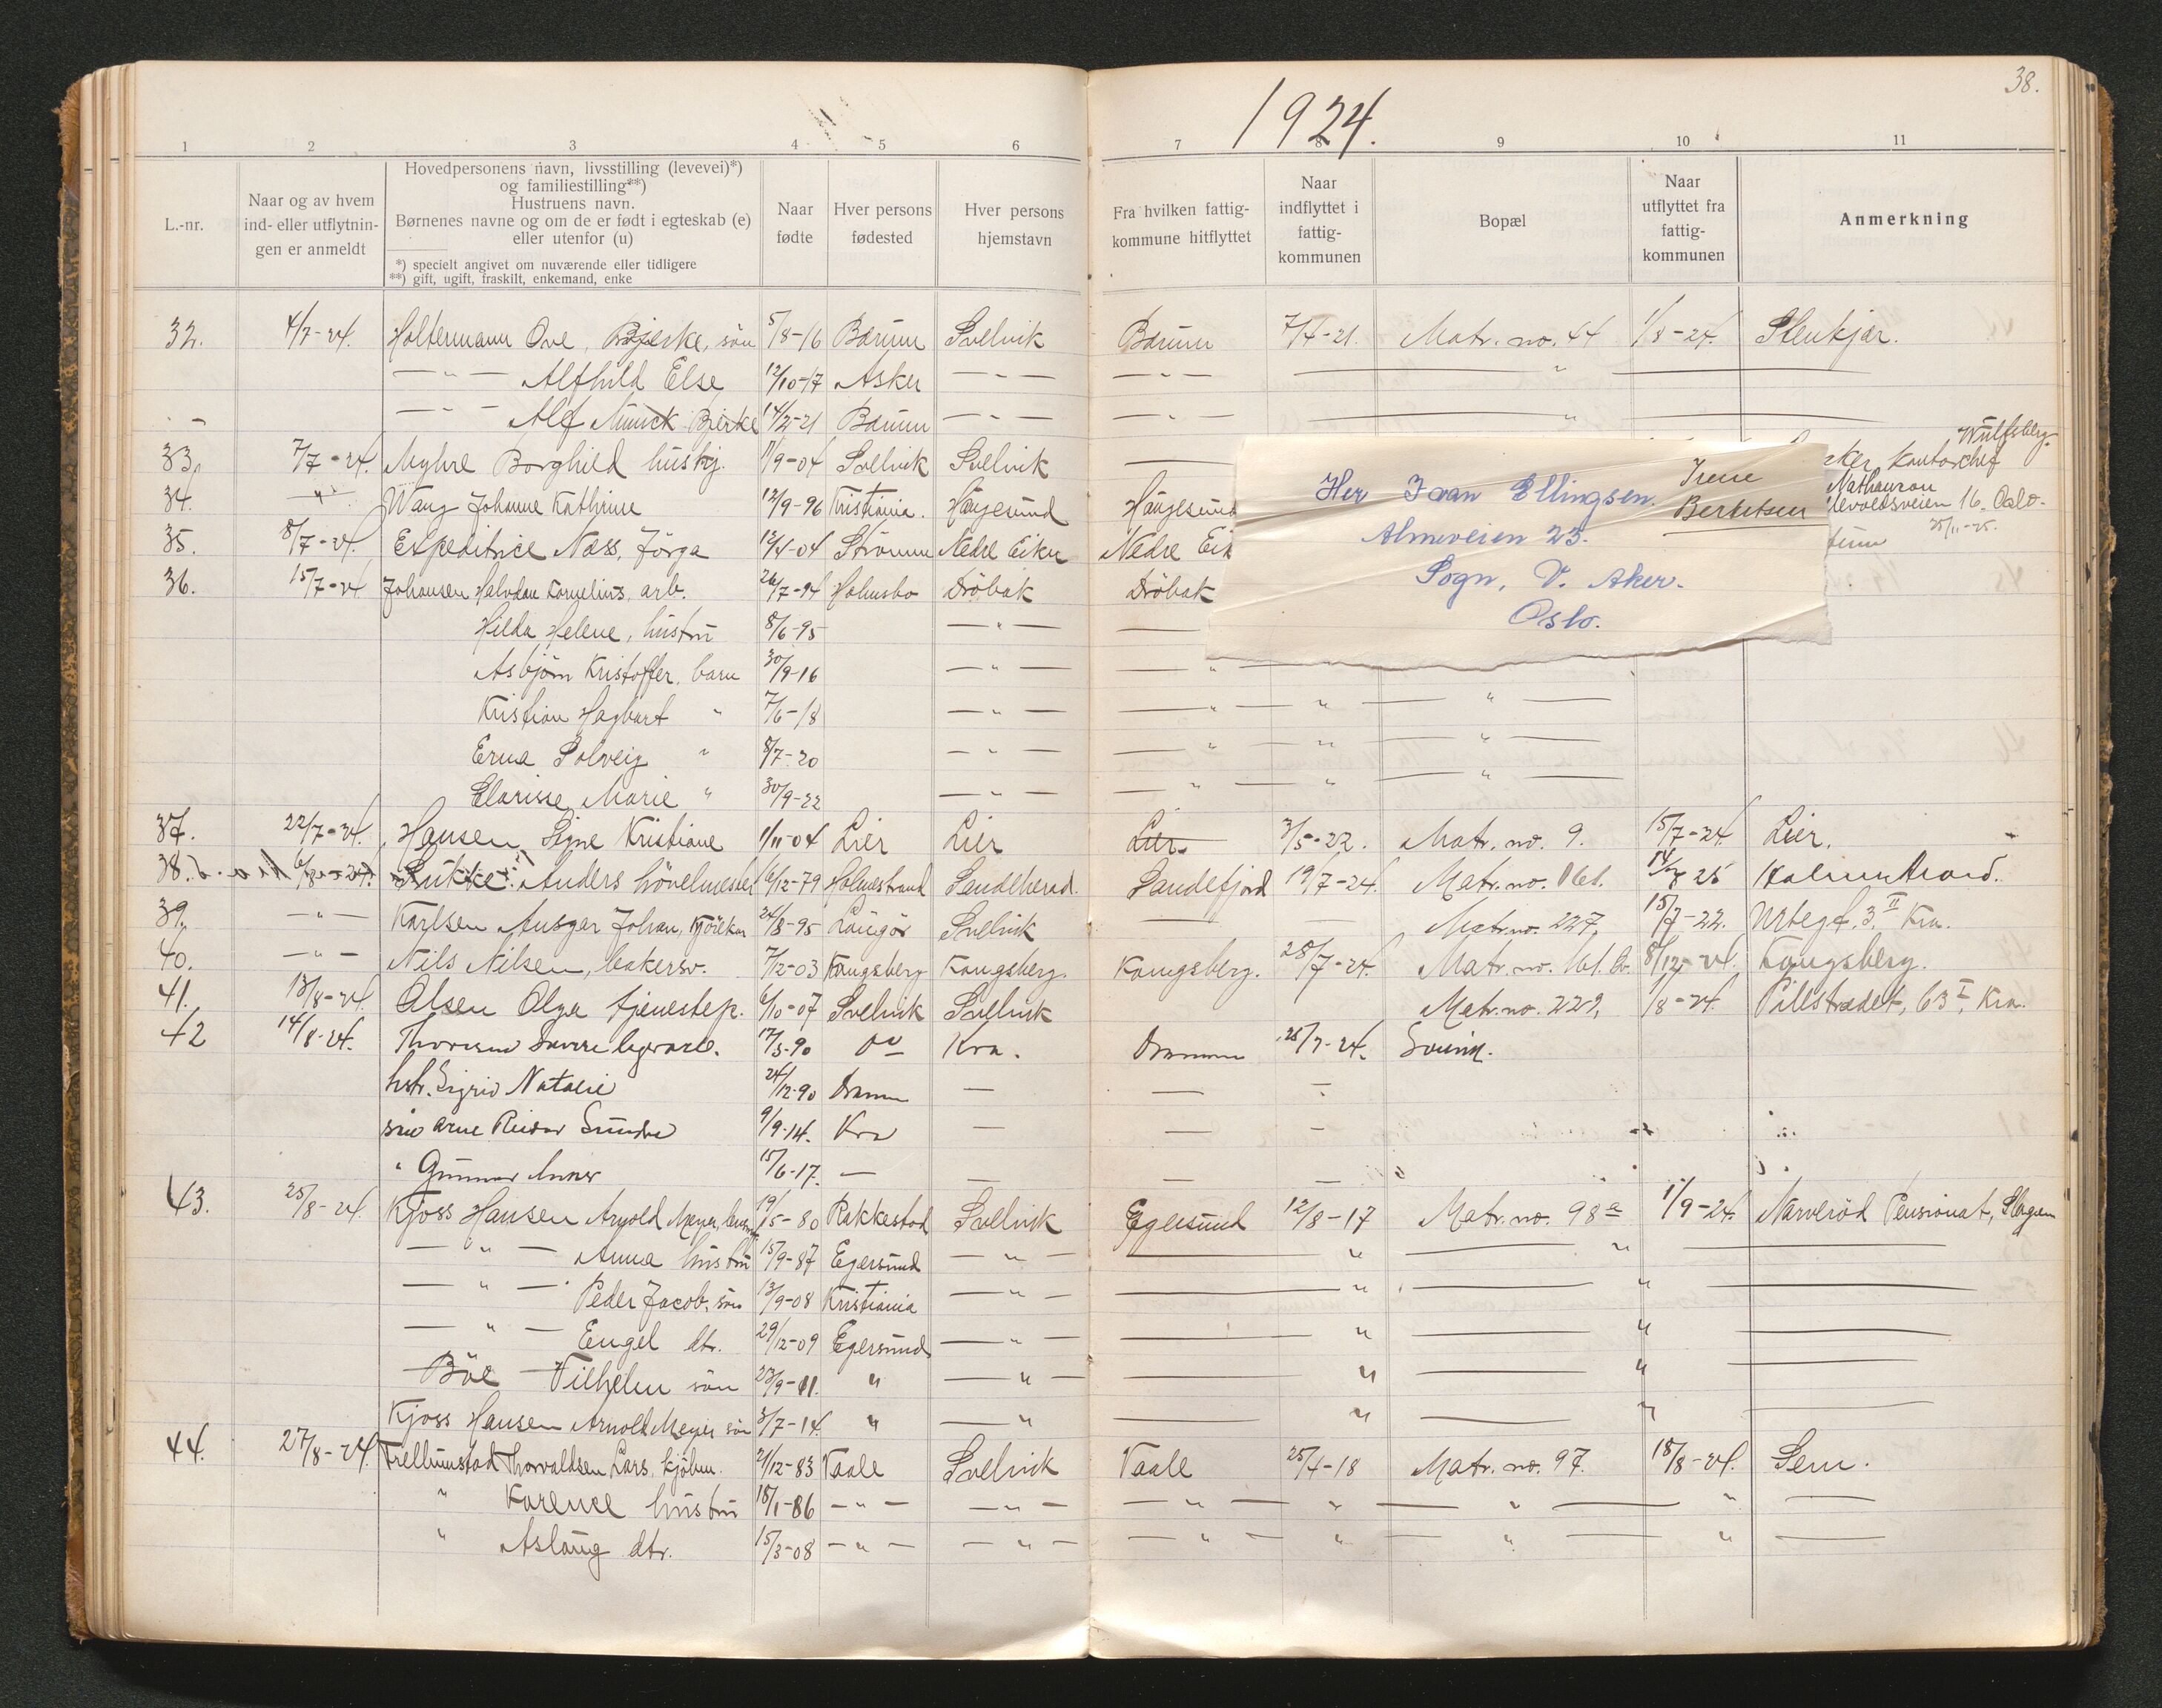 38.
1924.
1 2 3 4 5 6 7 8 9 10 11
L.-nr.
Naar og av hvem
ind- eller utflytnin-
gen er anmeldt
Hovedpersonens navn, livsstilling (levevei)*)
og familiestilling**)
Hustruens navn.
Børnenes navne og om de er født i egteskab (e)
eller utenfor (u)
*) specielt angivet om nuværende eller tidligere
**) gift, ugift, fraskilt, enkemand, enke
Naar
fødte
Hver persons
fødested
Hver persons
hjemstavn
Fra hvilken fattig-
kommune hitflyttet
Naar
indflyttet i
fattig-
kommunen
Bopæl
Naar
utflyttet fra
fattig-
kommunen
Anmerkning
32. 4/7-24. Holtermann Ove, Bjerke, sön 5/8-16 Bærum Svelvik Bærum 7/4-21. Matr. no. 44 1/8-24. Stenkjær.
— " — Alfhild Else 12/10-17 Asker — " — — " — "
— " — Alf Munck Bjerke 14/2-21 Bærum — " — — " — "
33. 7/7-24. Myhre Borghild hushj. /9-04 Svelvik Svelvik — Wulfsberg.
aker kontorchef
34. — " — Wang Johanne Kathrine 12/9-96 Kristiania. Haugesund Haugesund Nathanson
evoldsveien 16, Oslo-
25/11-25.
35. 8/7-24. Expeditrice Næss, Jörga 12/4-04 Strömm Nedre Eiker Nedre Eik
36. 15/7-24 Johansen Halvdan Kornelius, arb. 26/7-94 Holmsbo Dröbak Dröbak
Her Ivan Ellingsen. Irene
Berntsen
Almeveien 23.
Sogn, V. Aker.
Oslo.
Hilda Helene, hustru 8/6-95 — " — —
Asbjörn Kristoffer, barn 30/9-16 — " — — " —
Kristian Hagbart " 7/6-18 — " — — " — " — " —
Erna Solveig " 8/7-20 — " — — " — " — " —
Clarisse Marie " 30/9-22 — " — — " — " — " —
37. 22/7-24. Hansen Signe Kristiane 1/11-04 Lier Lier Lier. 3/5-22. Matr. no. 9. 15/7-24 Lier.
38. 6/8-24. Anders hövelmester 6/12-79 Holmestrand Sandeherred. Sandefjord 19/7-24. Matr. no. 161. 25 Holmestrand.
39. — " — Karlsen Ansgar Johan, 24/8-95 Langör Svelvik — — Matr. no. 227, 15/7-22. Urtegt. 3 II Kra.
40. — " — Nils Nilsen, bakersv. 7/12-03 Kongsberg Kongsberg. Kongsberg. 28/7-24. Matr. no. 161. 8/12-24. Kongsberg.
41. 13/8-24. Olsen Olga tjenestep. 6/10-07 Svelvik Svelvik Matr. no. 229, /8-24. Pilestrædet, 63 I, Kra.
42 14/8-24. 17/3-90 Do Kra. Drammen 25/7-24.
hstr. Sigrid Natalie 24/12-90 Dramm — — —
sön Arne Reidar 9/9-14. Kra — — —
" Gunnar 15/6-17. — — — —
43. 25/8-24. Kjoss Hansen Arnold Meyer, 19/5-80 Rakkestad Svelvik Egersund 12/8-17 Matr. no. 98a 1/9-24. Narverød Pensionat, Slagen
— " — Anna hustru 15/9-87 Egersund — " — " "
— " — Peder Jacob, sön 13/9-08 Kristiania — " — " "
— " — Engel dtr. 29/12-09 Egersund — " — " "
Böe Vilhelm sön 23/9-11. " — " — " "
Kjoss Hansen Arnold Meyer sön 3/7-14. " — " " "
44. 27/8-24. Trellumstad Thorvaldsen Lars, kjöbm. 21/12-83 Vaale Svelvik Vaale 25/4-18 Matr. no. 97. 18/8-24. Sem.
" Karence hustru 18/1-86 — " — — " — — " — " — " — " —
" Aslaug dtr. 15/3-08 — " — — " — — " — " — " — " —